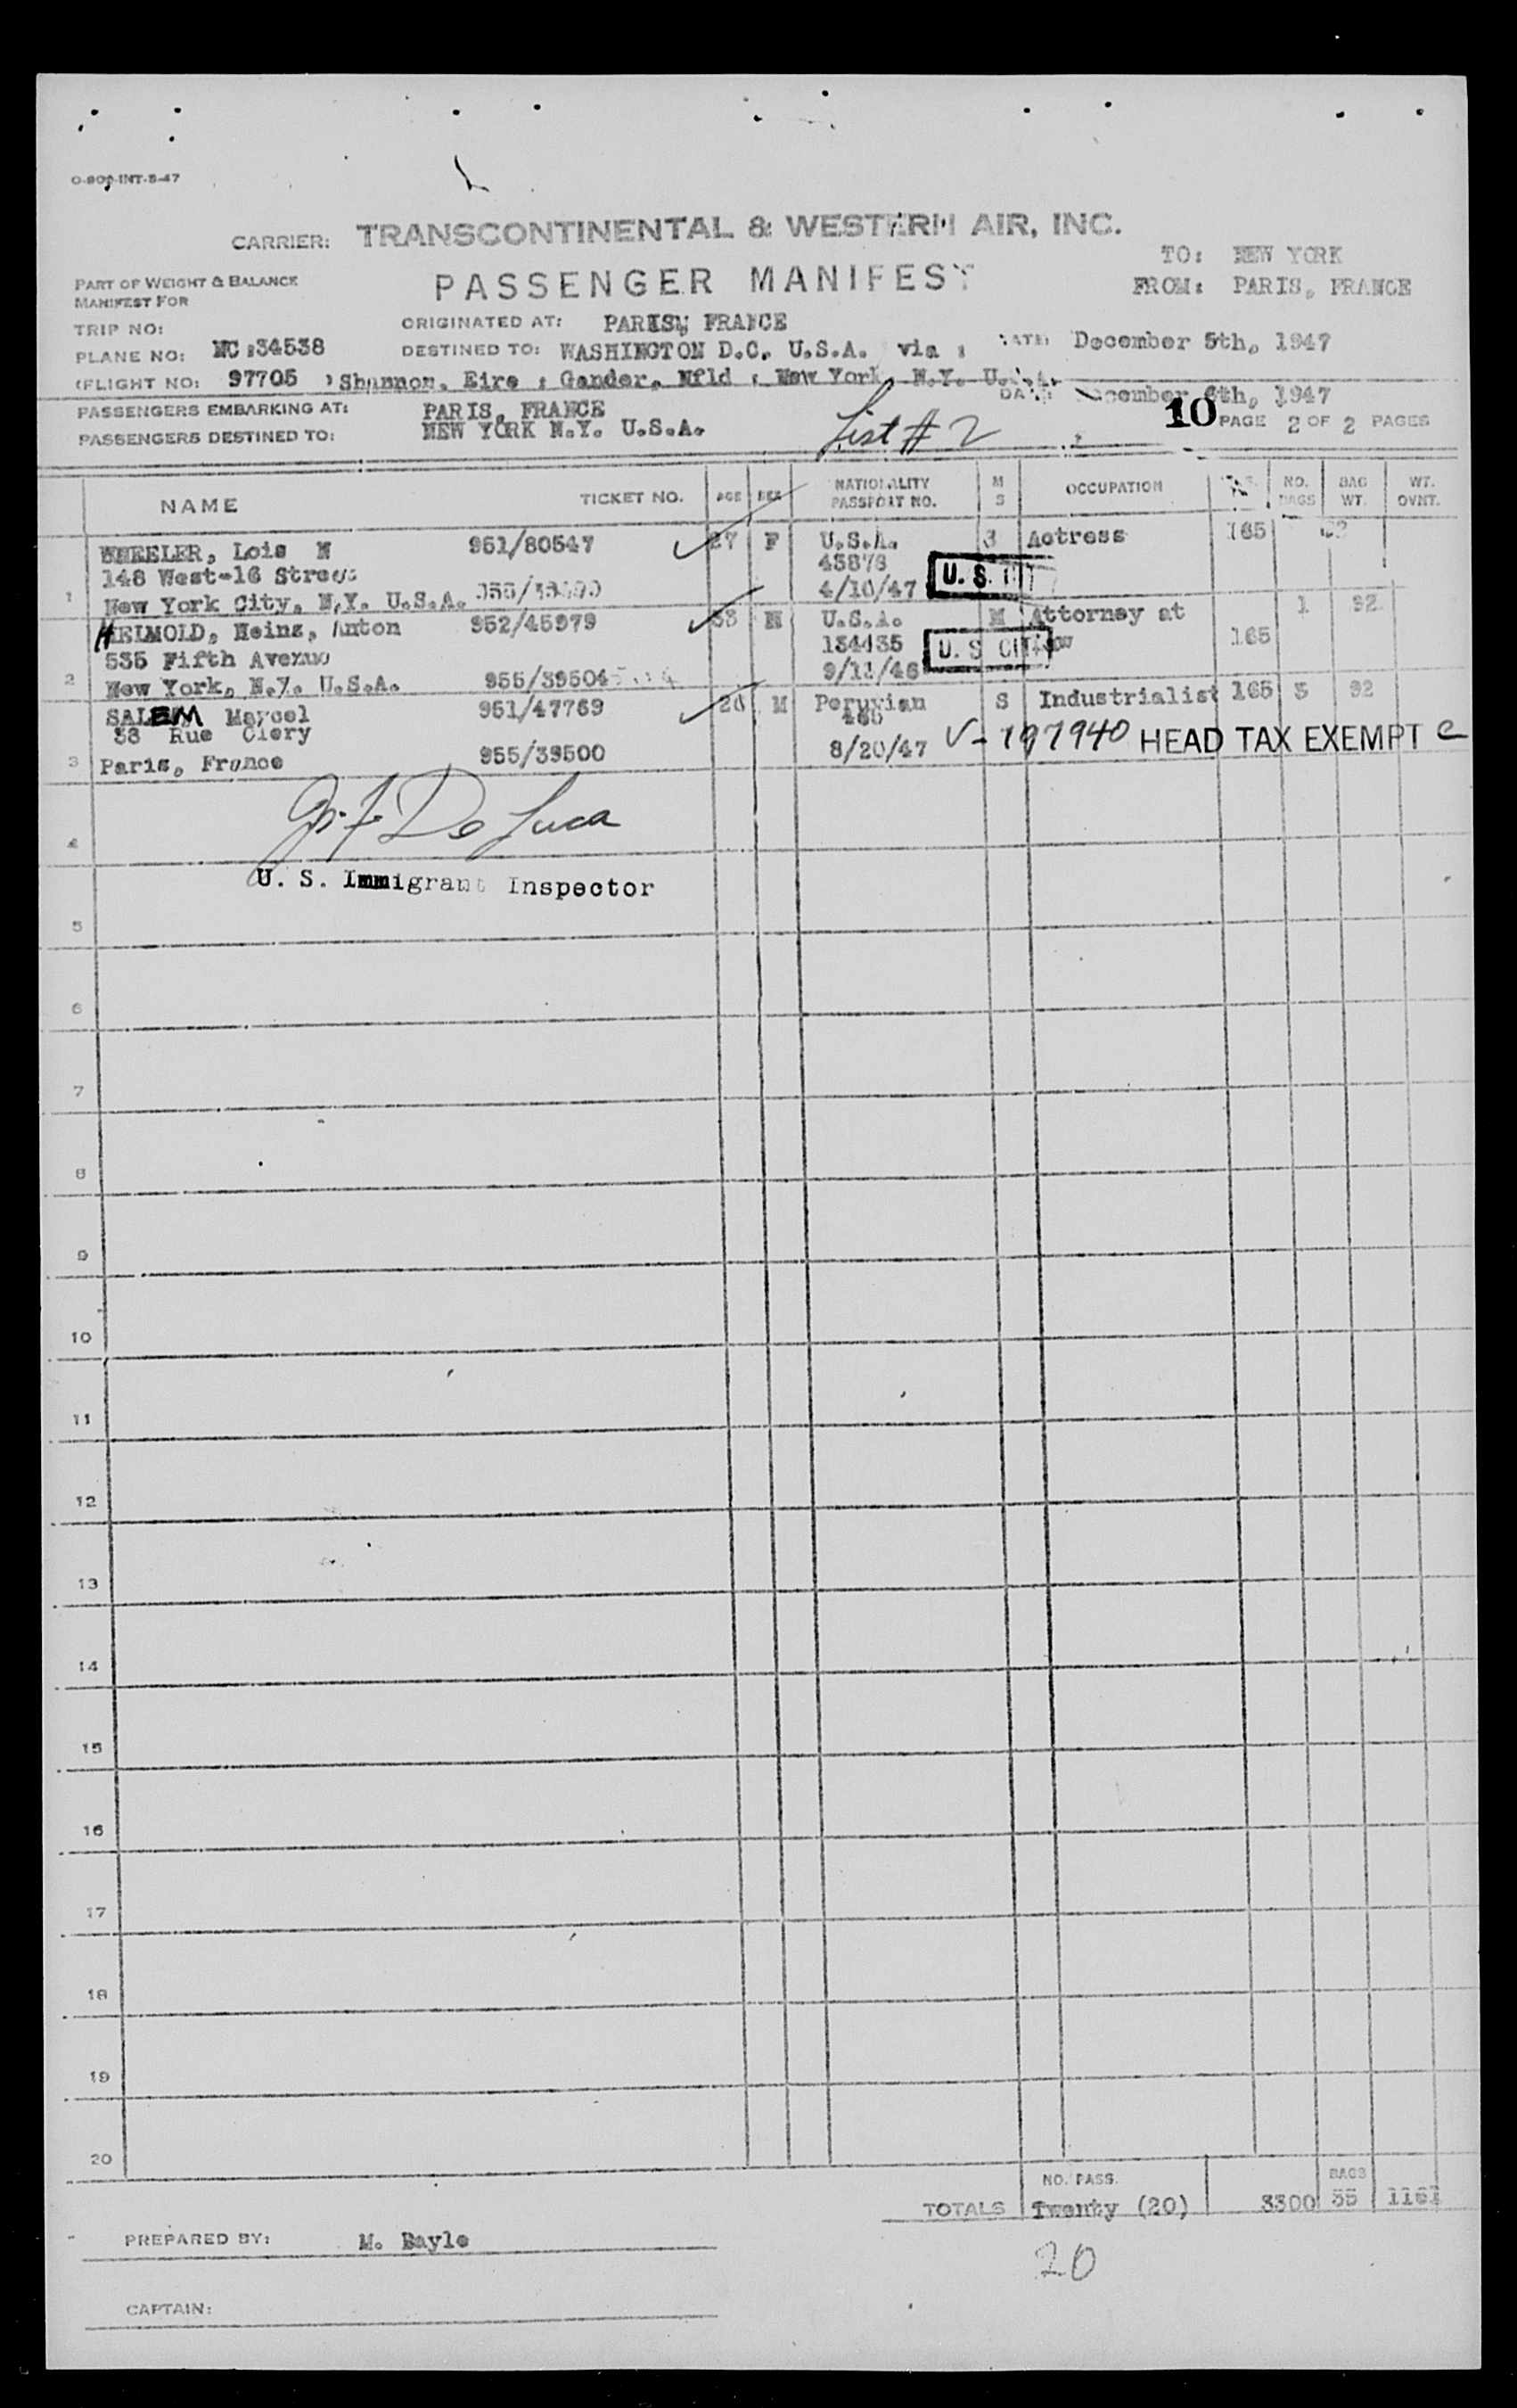 O-800-INT-5-47
CARRIER: TRANSCONTINENTAL & WESTERN AIR, INC.
TO: NEW YORK
PART OF WEIGHT & BALANCE
MANIFEST FOR
PASSENGER MANIFEST
FROM: PARIS, FRANCE
TRIP NO:
ORIGINATED AT: PARIS, FRANCE
PLANE NO: NC 34538
DESTINED TO: WASHINGTON D.C. U.S.A. via :
DATE: December 5th, 1947
(FLIGHT NO: 97705 ) Shannon, Eire : Gander, Nfld : New York, N.Y. U.S.A.
DATE: December 6th, 1947
PASSENGERS EMBARKING AT: PARIS, FRANCE
PASSENGERS DESTINED TO: NEW YORK N.Y. U.S.A.
List # 2
10 PAGE 2 OF 2 PAGES
NAME TICKET NO. AGE SEX NATIONALITY PASSPORT NO. M S OCCUPATION NO. BAGS BAG WT. WT. OVNT.
WHEELER, Lois N 951/80547 27 F U.S.A. Actress 165
148 West-16 Street 43878 U. S.
1 New York City, N.Y. U.S.A. 4/10/47
HELMOLD, Heinz, Anton 952/45979 M U.S.A. M Attorney at 1 92
535 Fifth Avenue 134435 U. S. CIT Law 165
2 New York, N.Y. U.S.A. 955/39504
SALEM Marcel 951/47769 M Peruvian S Industrialist 165 3 92
38 Rue Clery
V-197940 HEAD TAX EXEMPT C
3 Paris, France 955/39500 8/20/47
De Luca
4
U. S. Immigrant Inspector
5
6
7
8
9
10
11
12
13
14
15
16
17
18
19
20
NO. PASS. BAGS
TOTALS Twenty (20) 3300 35 1161
PREPARED BY: M. Bayle
20
CAPTAIN: